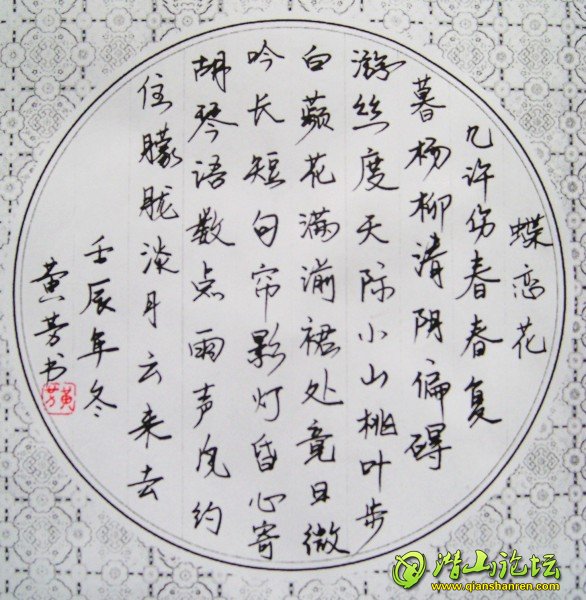 蝶恋花
几许伤春春复
暮杨柳清阴偏碍
游丝度天际小山桃叶步
白蘋花满湔裙处竟日微
吟长短句帘影灯昏心寄
胡琴语数点雨声风约
住朦胧淡月云来去
壬辰年冬
黄芳书
黄芳
潜山论坛
www.qianshanren.com